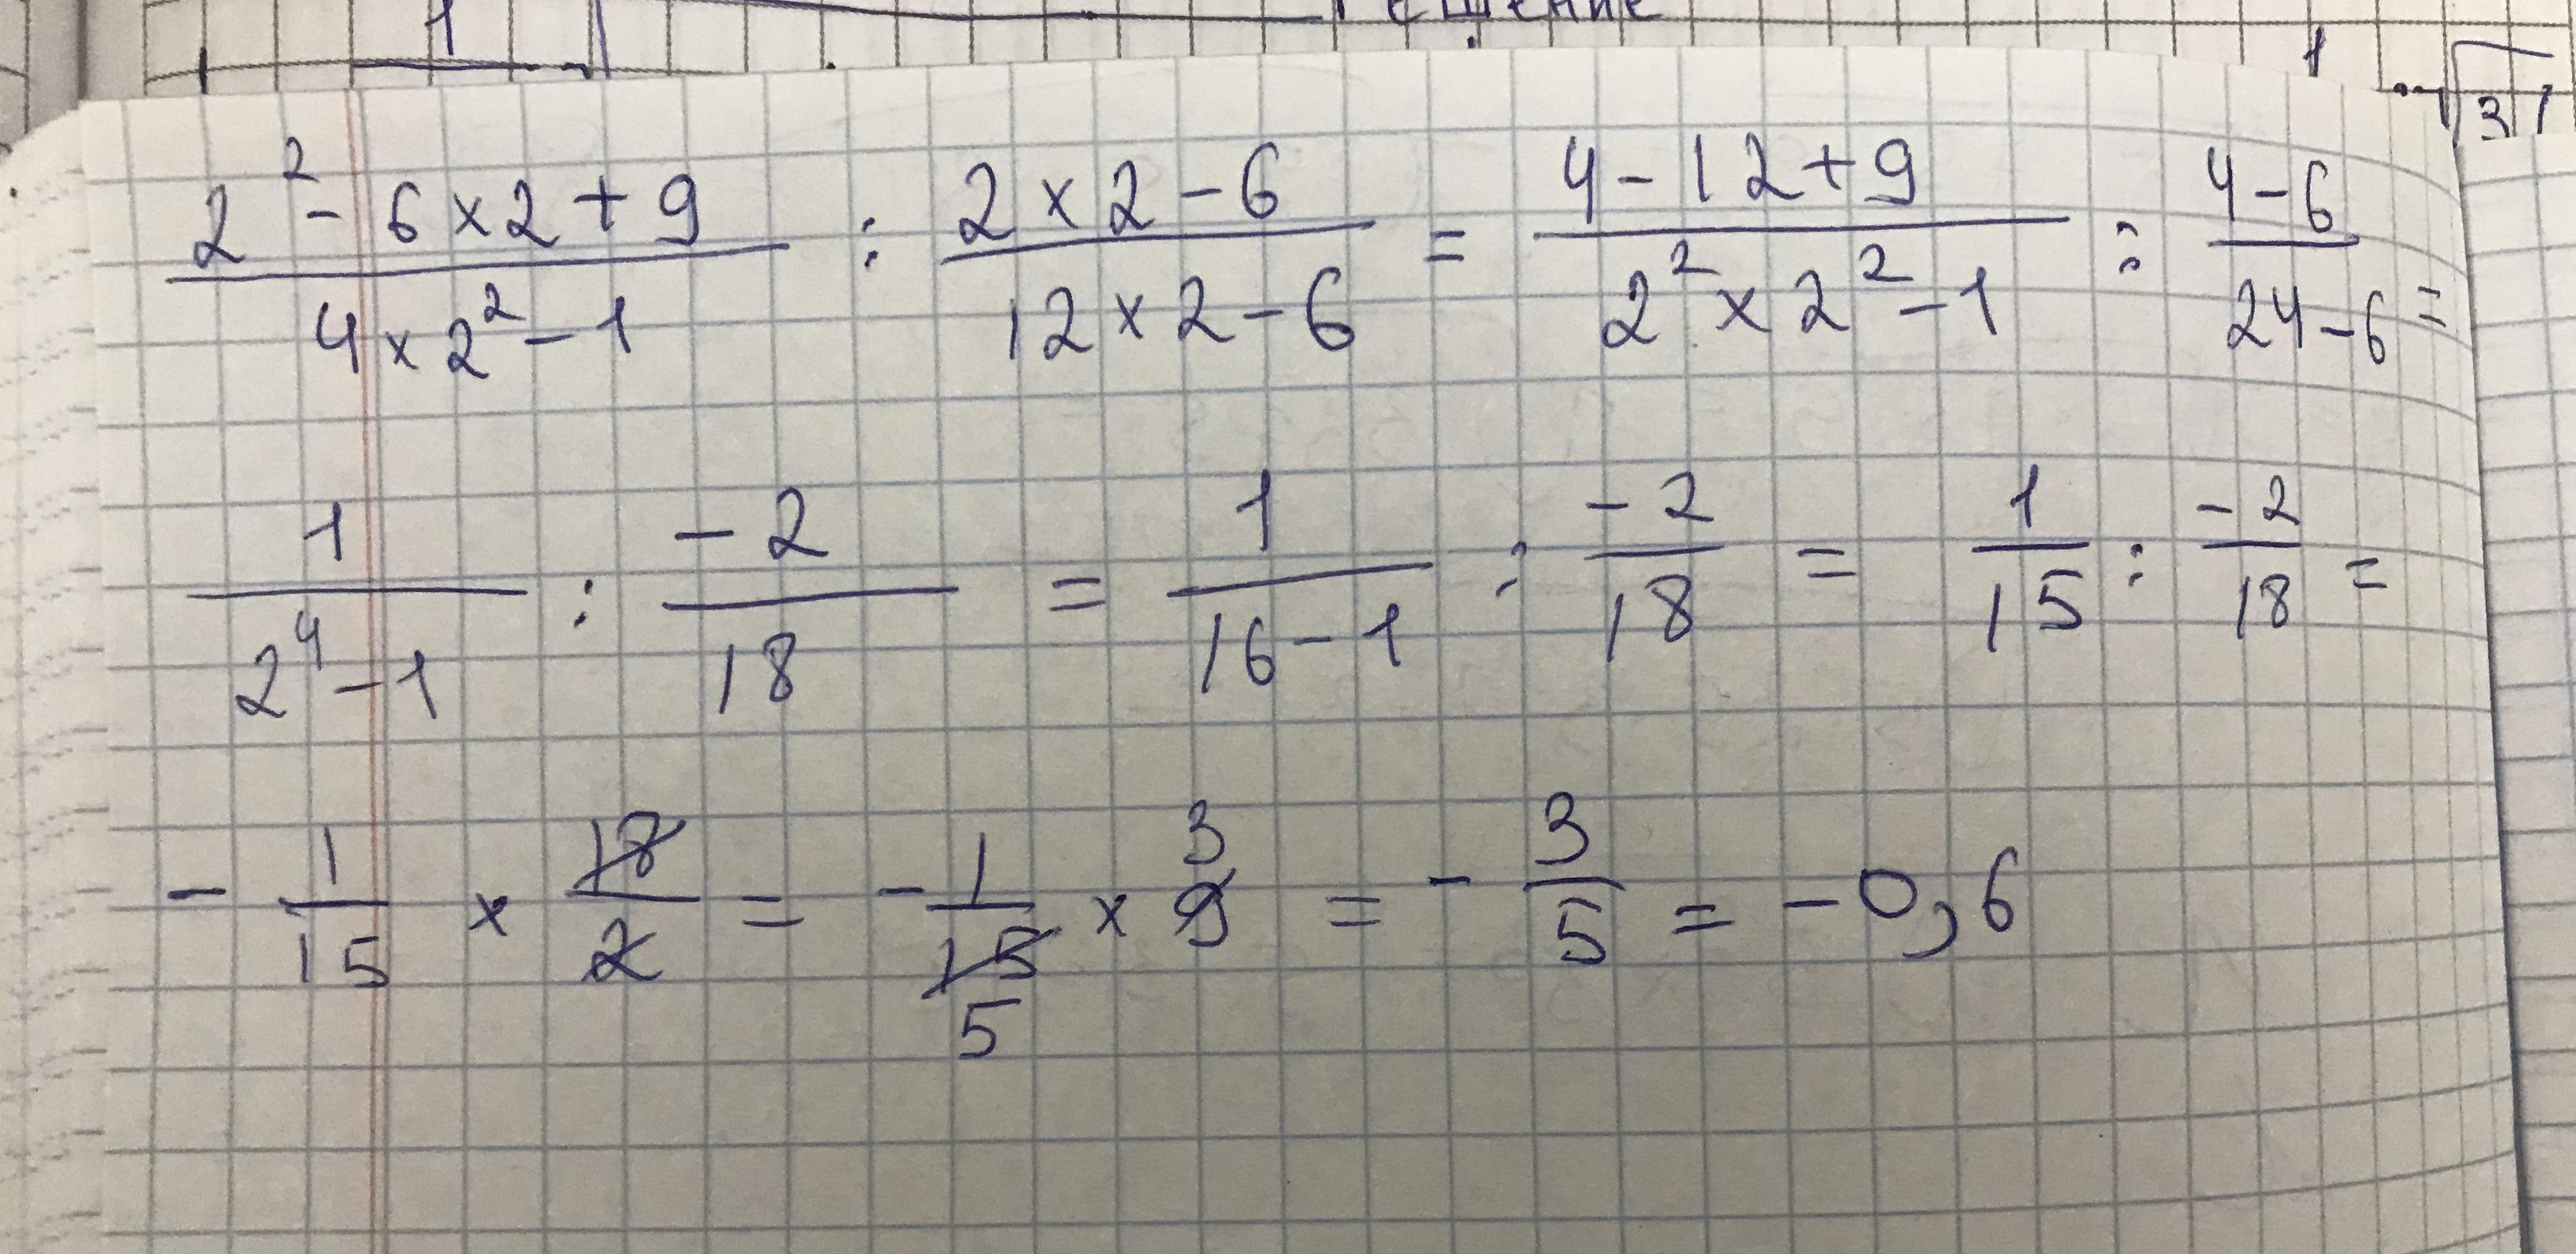 1 ешение
1 31
(2² - 6 × 2 + 9)/(4 × 2² - 1) : (2 × 2 - 6)/(12 × 2 - 6) = (4 - 12 + 9)/(2² × 2² - 1) : (4 - 6)/(24 - 6) =
1/(2⁴ - 1) : (-2)/18 = 1/(16 - 1) : (-2)/18 = 1/15 : (-2)/18 =
- 1/15 × 18/2 = - 1/15 × 9 = - 3/5 = - 0,6
3
5